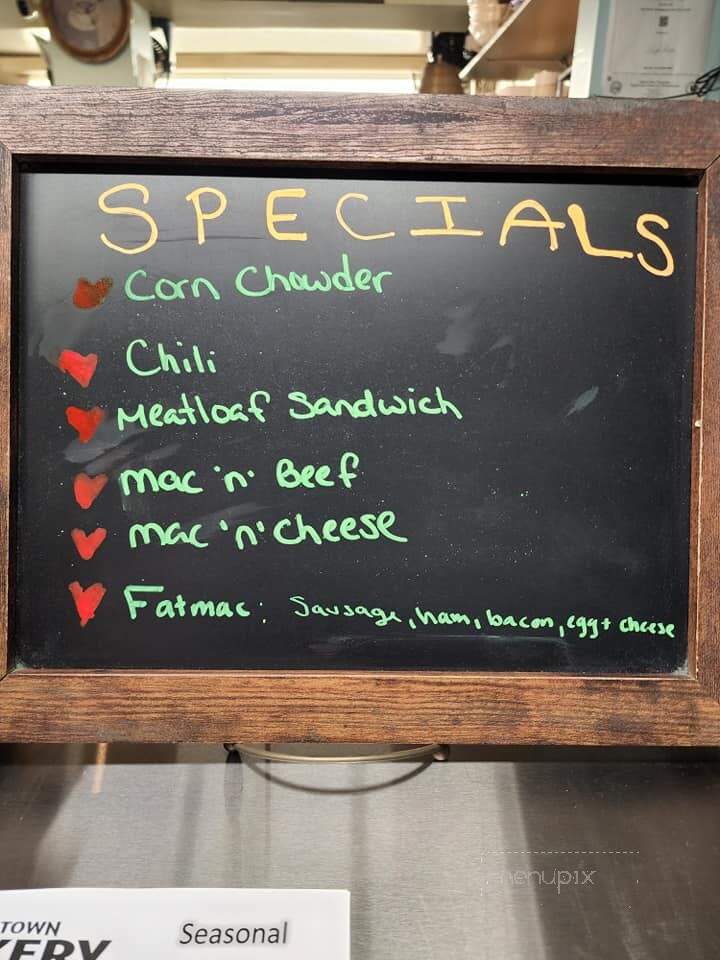 SPECIALS
Corn Chowder
Chili
Meatloaf Sandwich
Mac 'n' Beef
Mac 'n' Cheese
Fatmac: Sausage, ham, bacon, egg + cheese
menupix
TOWN
KERY
Seasonal